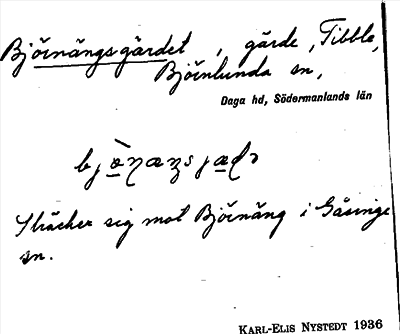 Björnängsgärdet, gärde, Tibble,
Björnlunda sn,
Daga hd, Södermanlands län
Sträcker sig mot Björnäng i Gåsinge
sn.
KARL-ELIS NYSTEDT 1936